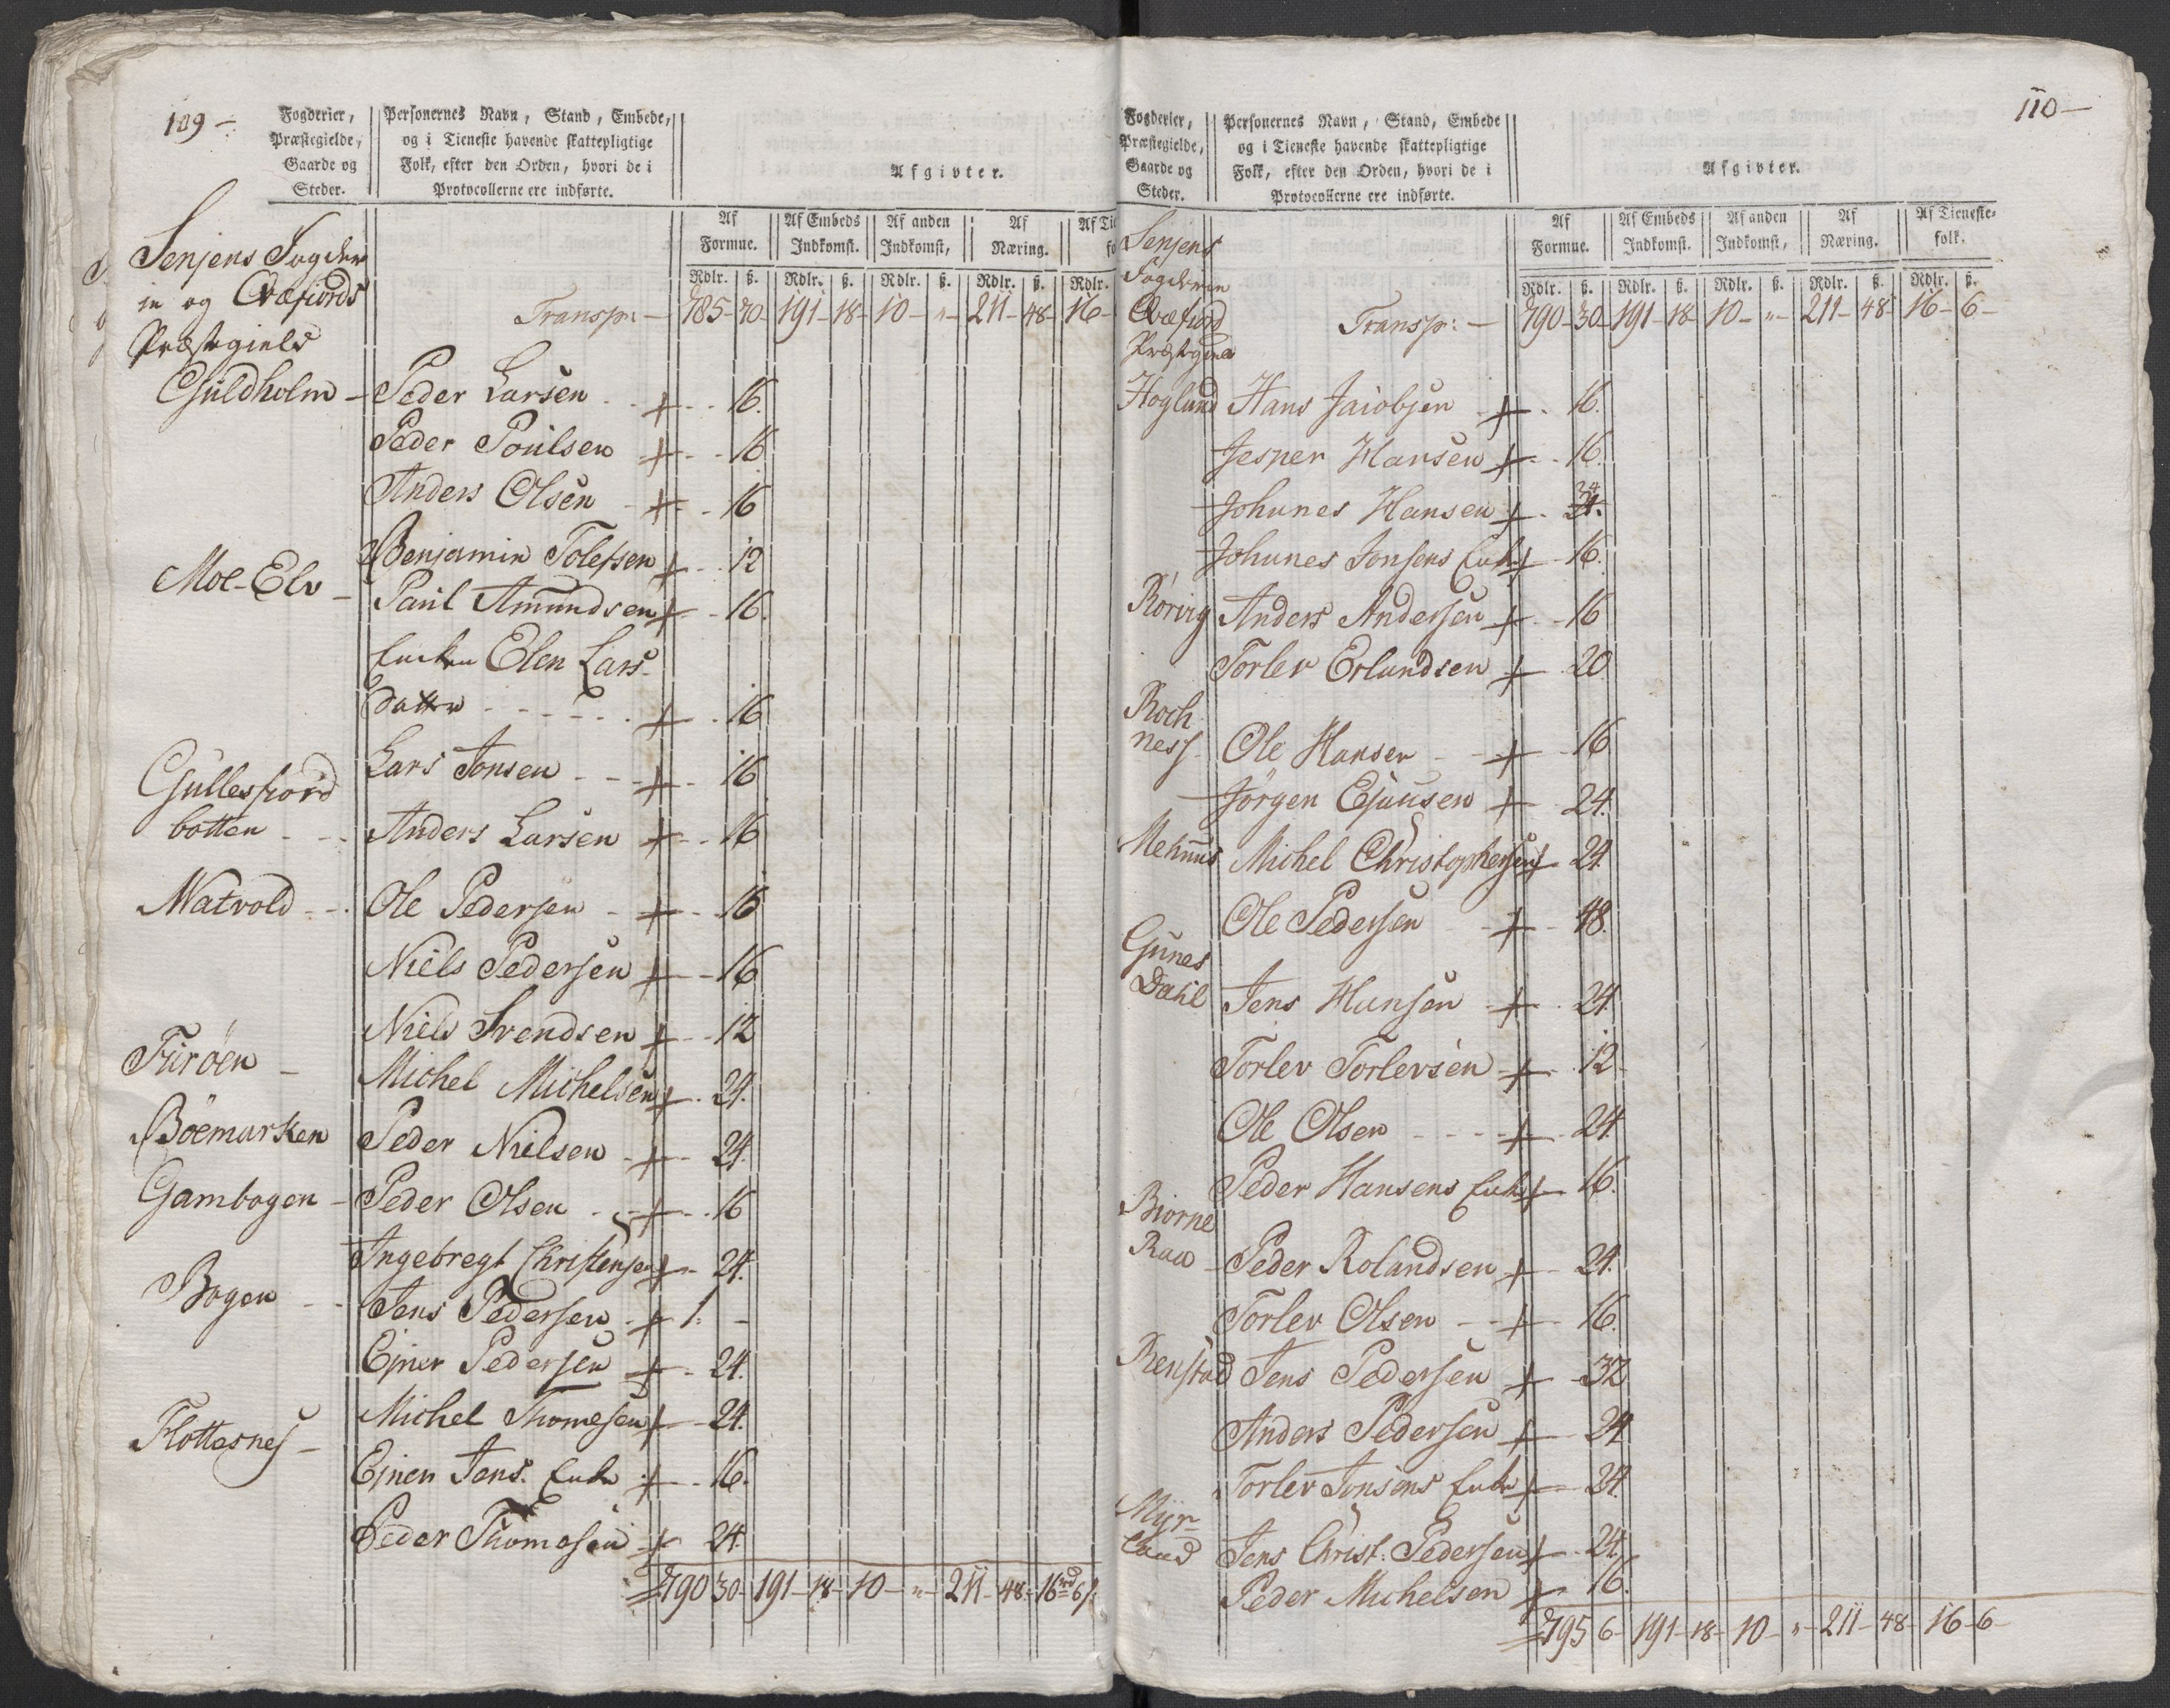 109 –
Fogderier,
Præstegielde,
Gaarde og
Steder.
Personernes Navn, Stand, Embede,
og i Tieneste havende skattepligtige
Folk, efter den Orden, hvori de i
Protocollerne ere indførte.
Afgivter.
Af Formue. Af Embeds Indkomst. Af anden Indkomst, Af Næring. Af Ti
Rdlr. ß. Rdlr. ß. Rdlr. ß. Rdlr. ß. Rdlr.
Senjens Fogder
ie og Qvæfiords
Præstegield
Transp: – 785 – 70 – 191 – 18 – 10 – " – 211 – 48 – 16 –
Guldholm – Peder Larsen + 16.
Peder Poulsen + 16
Anders Olsen + 16
Benjamin Tolefsen + 12
Moe-Elv – Paul Amundsen + 16.
Enken Elen Lars-
datter + 16
Lars Jonsen + 16
Gullesfiord
botten – Anders Larsen + 16
Natvold – Ole Pedersen + 16
Niels Pedersen + 16
Niels Svendsen + 12
Furöen – Michel Michelsen + 24.
Böemarken Peder Nielsen + 24.
Gambogen – Peder Olsen + 16
Ingebregt Christensen + 24.
Bogen – Jens Pedersen + 1. –
Ejner Pedersen + 24.
Flottesnes – Michel Thomesen + 24.
Ejnen Jens. Enke + 16.
Peder Thomesen + 24.
790 30 – 191 – 18 – 10 – " – 211 – 48 – 16 rd 6 ß.
110 –
Fogderier,
Præstegielde,
Gaarde og
Steder.
Personernes Navn, Stand, Embede
og i Tieneste havende skattepligtige
Folk, efter den Orden, hvori de i
Protocollerne ere indførte.
Afgivter.
Af Formue. Af Embeds Indkomst. Af anden Indkomst, Af Næring. Af Tieneste-folk.
Rdlr. ß. Rdlr. ß. Rdlr. ß. Rdlr. ß. Rdlr. ß.
Senjens
Fogderie
Qvæfiord
Transp: – 790 – 30 – 191 – 18 – 10 – " – 211 – 48 – 16 – 6 –
Hoglund Hans Jacobsen + 16.
Jesper Hansen + 16.
Johanes Hansen + 24
Johanes Jonsens Enke + 16.
Rörvig Anders Andersen + 16
Torlev Erlandsen + 20
Roch
ness Ole Hansen + 16
Jörgen Ejnersen + 24.
Mehuus Michel Christophersen + 24
Ole Pedersen + 48.
Gunes
Dahl Jens Hansen + 24.
Torlev Torlevsen + 12
Ole Olsen + 24.
Peder Hansens Enke + 16.
Biorne
Raa – Peder Rolandsen + 24.
Torlev Olsen + 16.
Renstad Jens Pedersen + 32
Anders Pedersen + 24
Torlev Jonsens Enke + 24.
Myr-
land Jens Christ: Pedersen + 24
Peder Michelsen + 16.
795 6 – 191 – 18 – 10 – " – 211 – 48 – 16 – 6 –